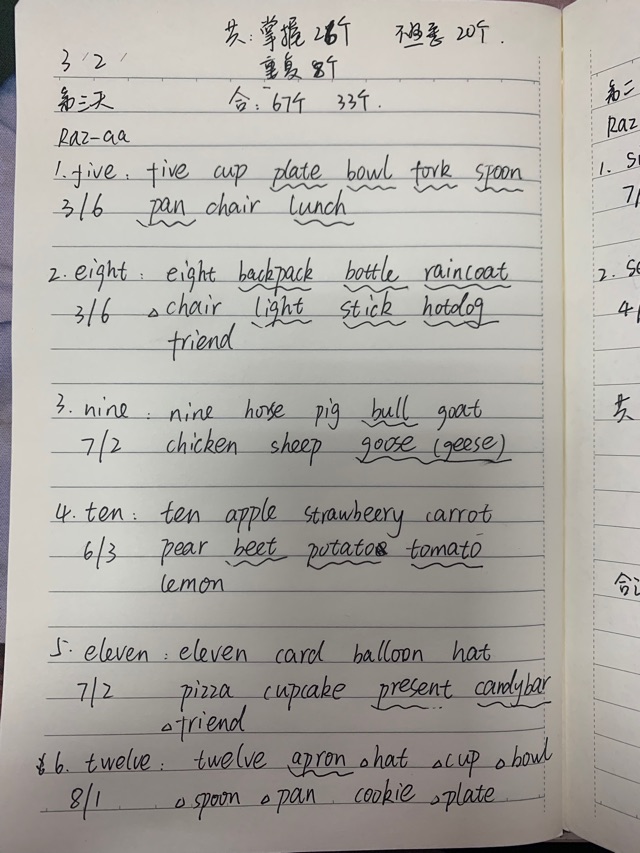 共：掌握26个 不熟悉20个.
3/2/ 重复8个
第三天 合：67个 33个.
Raz-aa
1. five : five cup plate bowl fork spoon
3/6 pan chair lunch
2. eight : eight backpack bottle raincoat
3/6 △chair light stick hotdog
friend
3. nine : nine horse pig bull goat
7/2 chicken sheep goose (geese)
4. ten : ten apple strawbeery carrot
6/3 pear beet potato tomato
lemon
5. eleven : eleven card balloon hat
7/2 pizza cupcake present candybar
△friend
6. twelve : twelve apron △hat △cup △bowl
8/1 △spoon △pan cookie △plate
第二
Raz
1. S
7/
2. Se
4/
共
合